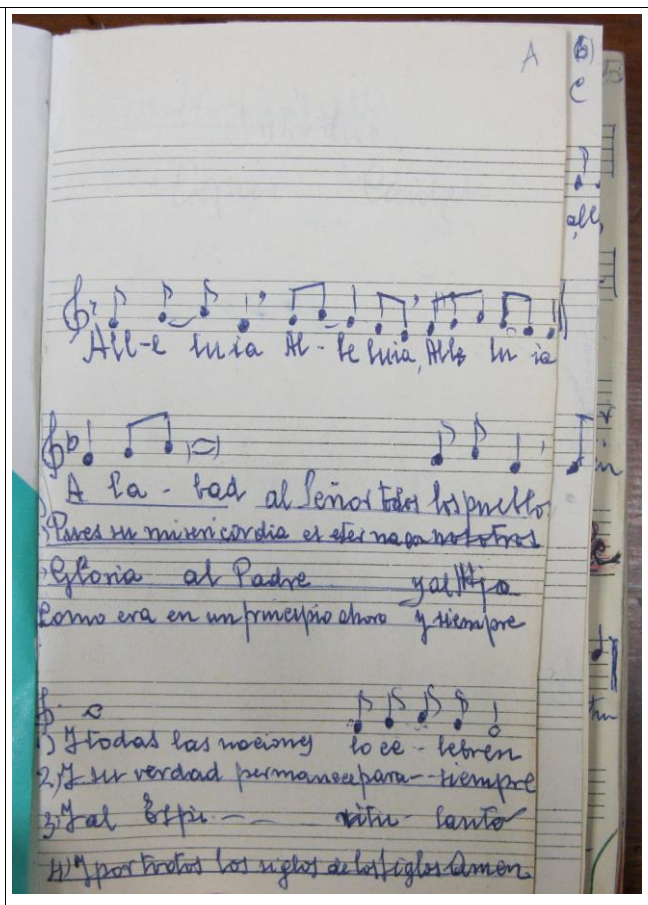 A
b)
C
all,
All-e luia Al-le luia, Alle lu ia
A la-bad al Señor todos los pueblos
Pues su misericordia es eterna con nosotros
Gloria al Padre y al Hijo
Como era en un principio ahora y siempre
1) Y todas las naciones lo ce-lebren
2) Y su verdad permanece para--siempre
3) Y al Espi--- ritu-Santo
4) Y por todos los siglos de los siglos Amen